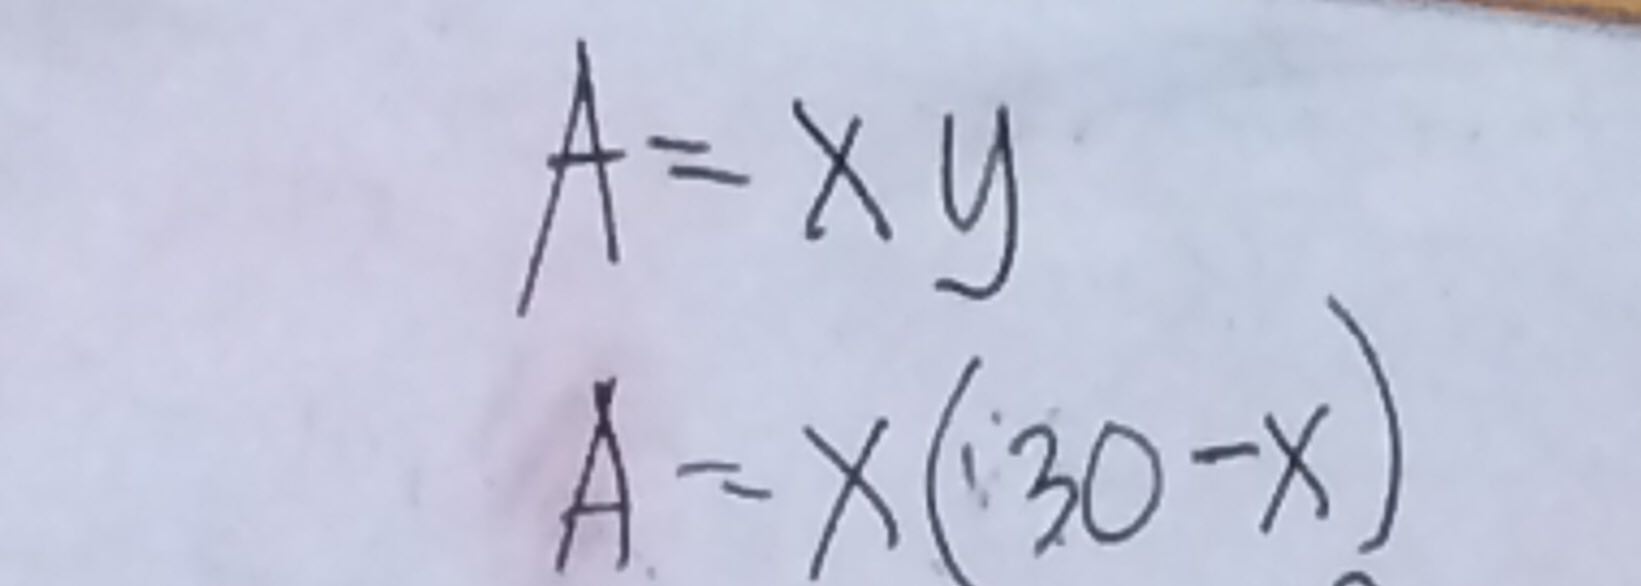 A = xy
A = x(30-x)